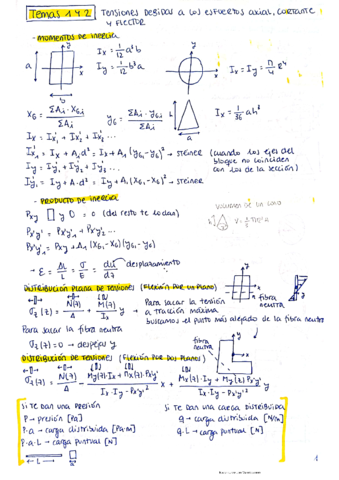 Temas 1 y 2 TENSIONES DEBIDAS A LOS ESFUERZOS AXIAL, CORTANTE
Y FLECTOR
- MOMENTOS DE INERCIA
a
b
x
y
Ix = 1/12 a³b
Iy = 1/12 b³a
Ix = Iy = π/4 R⁴
XG = ΣAi·XGi / ΣAi
yG = ΣAi·yGi / ΣAi
h
a
Ix = 1/36 ah³
Ix = Ix'1 + Ix'2 + Ix'3 ...
Ix'1 = Ix + A1d² = Ix + A1(yG1 - yG)² → STEINER (cuando los ejes del
bloque no coinciden
con los de la sección)
Iy = Iy'1 + Iy'2 + Iy'3 ...
Iy'1 = Iy + A·d² = Iy + A1(XG1 - XG)² → STEINER
- PRODUCTO DE INERCIA
Pxy □ y O = 0 (del resto te lo dan)
Px'y' = Px'y'1 + Px'y'2 ...
Px'y'1 = Pxy + A1(XG1 - XG)(yG1 - yG)
→ ε = ΔL/L = σ/E = du/dz desplazamiento
DISTRIBUCIÓN PLANA DE TENSIONES (FLEXIÓN POR UN PLANO)
σz(z) = N(z)/A + M(z)/Ix · y → Para sacar la tensión
a tracción máxima
buscamos el punto más alejado de la fibra neutra
fibra
neutra
Para sacar la fibra neutra
σz(z) = 0 → despejas y
DISTRIBUCIÓN DE TENSIONES (FLEXIÓN POR DOS PLANOS)
fibra
neutra
σz(z) = N(z)/A - My(z)·Ix + Mx(z)·Px'y' / Ix·Iy - Px'y'² x + Mx(z)·Iy + My(z)Px'y' / Ix·Iy - Px'y'² y
Si te dan una presión
P → presión [Pa]
P·a → carga distribuida [Pa·m]
P·a·L → carga puntual [N]
L
a
Si te dan una carga distribuida
q → carga distribuida [N/m]
q·L → carga puntual [N]
1